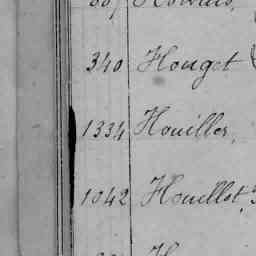 340 Houget
1334 Houiller,
1042 Houillot,